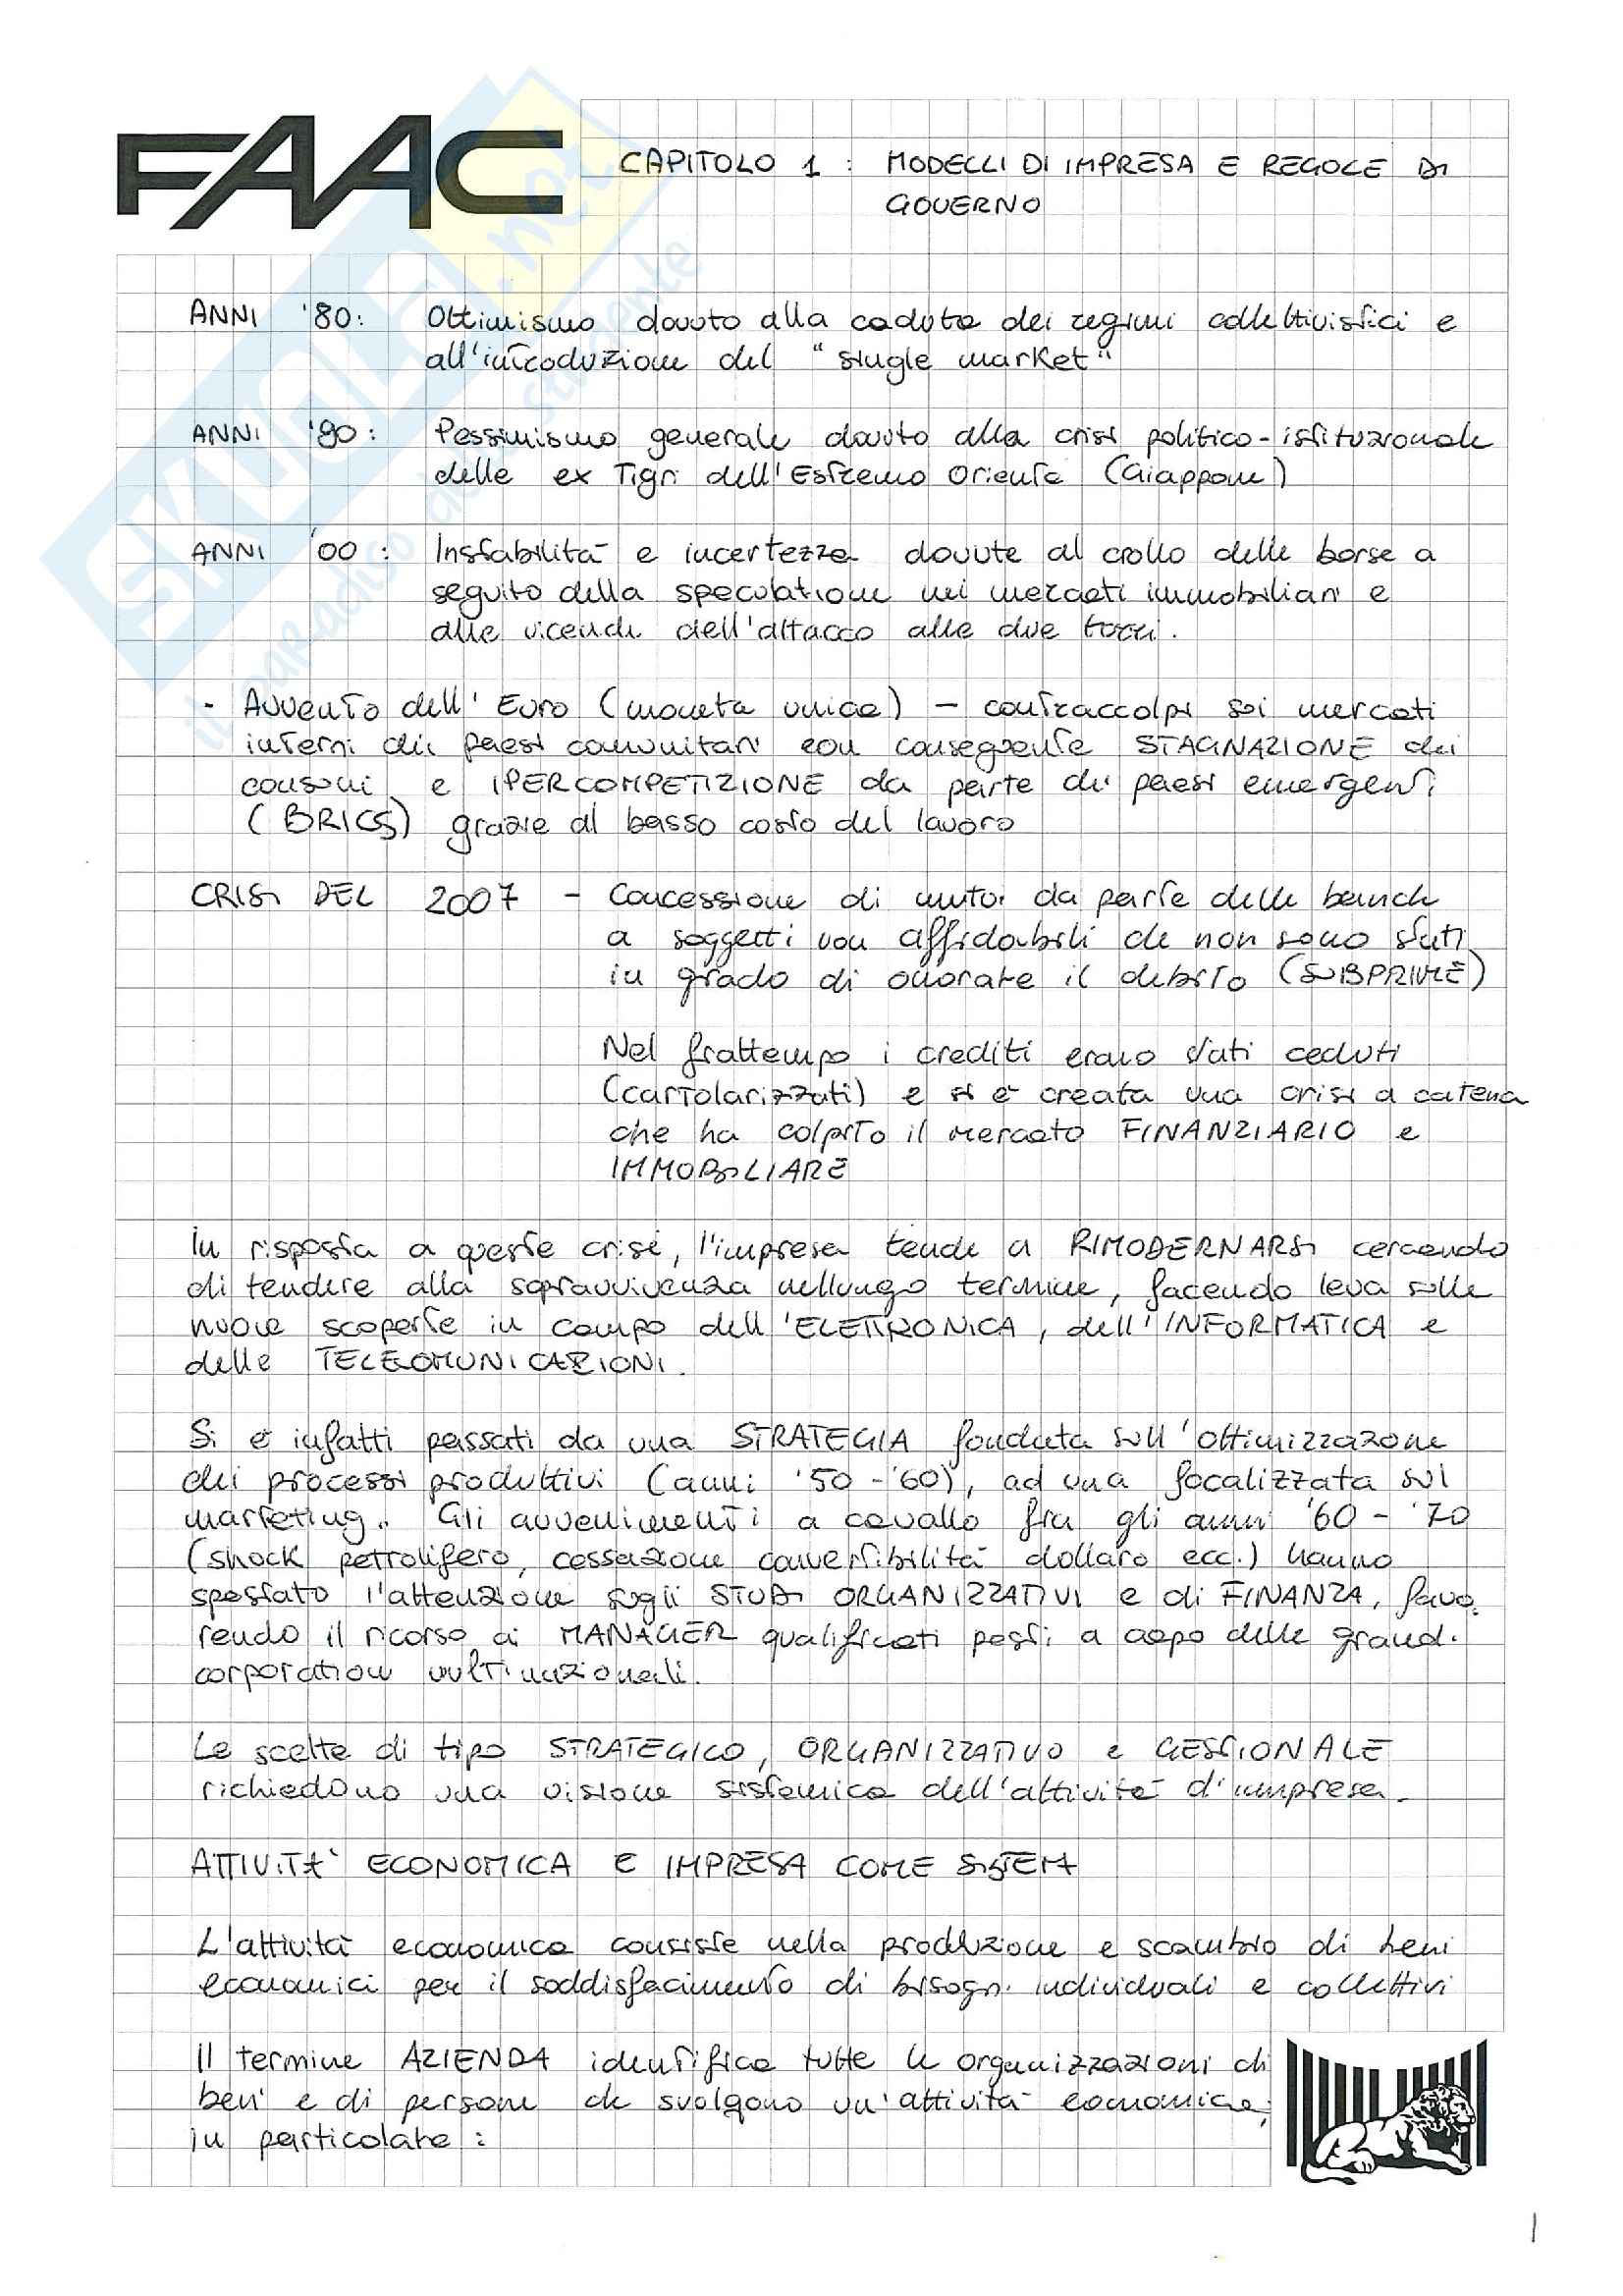 FAAC
CAPITOLO 1 : MODELLI DI IMPRESA E REGOLE DI
GOVERNO
ANNI '80: Ottimismo dovuto alla caduta dei regimi collettivistici e
all'introduzione del "single market"
ANNI '90: Pessimismo generale dovuto alla crisi politico-istituzionale
delle ex Tigri dell'Estremo Oriente (Giappone)
ANNI '00: Instabilità e incertezza dovute al crollo delle borse a
seguito della speculazione nei mercati immobiliari e
alle vicende dell'attacco alle due torri.
- Avvento dell'Euro (moneta unica) - contraccolpi sui mercati
interni dei paesi comunitari con conseguente STAGNAZIONE dei
consumi e IPERCOMPETIZIONE da parte di paesi emergenti
(BRICS) grazie al basso costo del lavoro
CRISI DEL 2007 - Concessione di mutui da parte delle banche
a soggetti non affidabili che non sono stati
in grado di onorare il debito (SUBPRIME)
Nel frattempo i crediti erano stati ceduti
(cartolarizzati) e si è creata una crisi a catena
che ha colpito il mercato FINANZIARIO e
IMMOBILIARE
In risposta a queste crisi, l'impresa tende a RIMODERNARSI cercando
di tendere alla sopravvivenza nel lungo termine, facendo leva sulle
nuove scoperte in campo dell'ELETTRONICA, dell'INFORMATICA e
delle TELECOMUNICAZIONI.
Si è infatti passati da una STRATEGIA fondata sull'ottimizzazione
dei processi produttivi (anni '50 - '60), ad una focalizzata sul
marketing. Gli avvenimenti a cavallo fra gli anni '60 - '70
(shock petrolifero, cessazione convertibilità dollaro ecc.) hanno
spostato l'attenzione sugli STUDI ORGANIZZATIVI e di FINANZA, favo
rendo il ricorso ai MANAGER qualificati posti a capo delle grandi
corporation multinazionali.
Le scelte di tipo STRATEGICO, ORGANIZZATIVO e GESTIONALE
richiedono una visione sistemica dell'attività d'impresa.
ATTIVITA' ECONOMICA E IMPRESA COME SISTEMA
L'attività economica consiste nella produzione e scambio di beni
economici per il soddisfacimento di bisogni individuali e collettivi
Il termine AZIENDA identifica tutte le organizzazioni di
beni e di persone che svolgono un'attività economica,
in particolare:
1